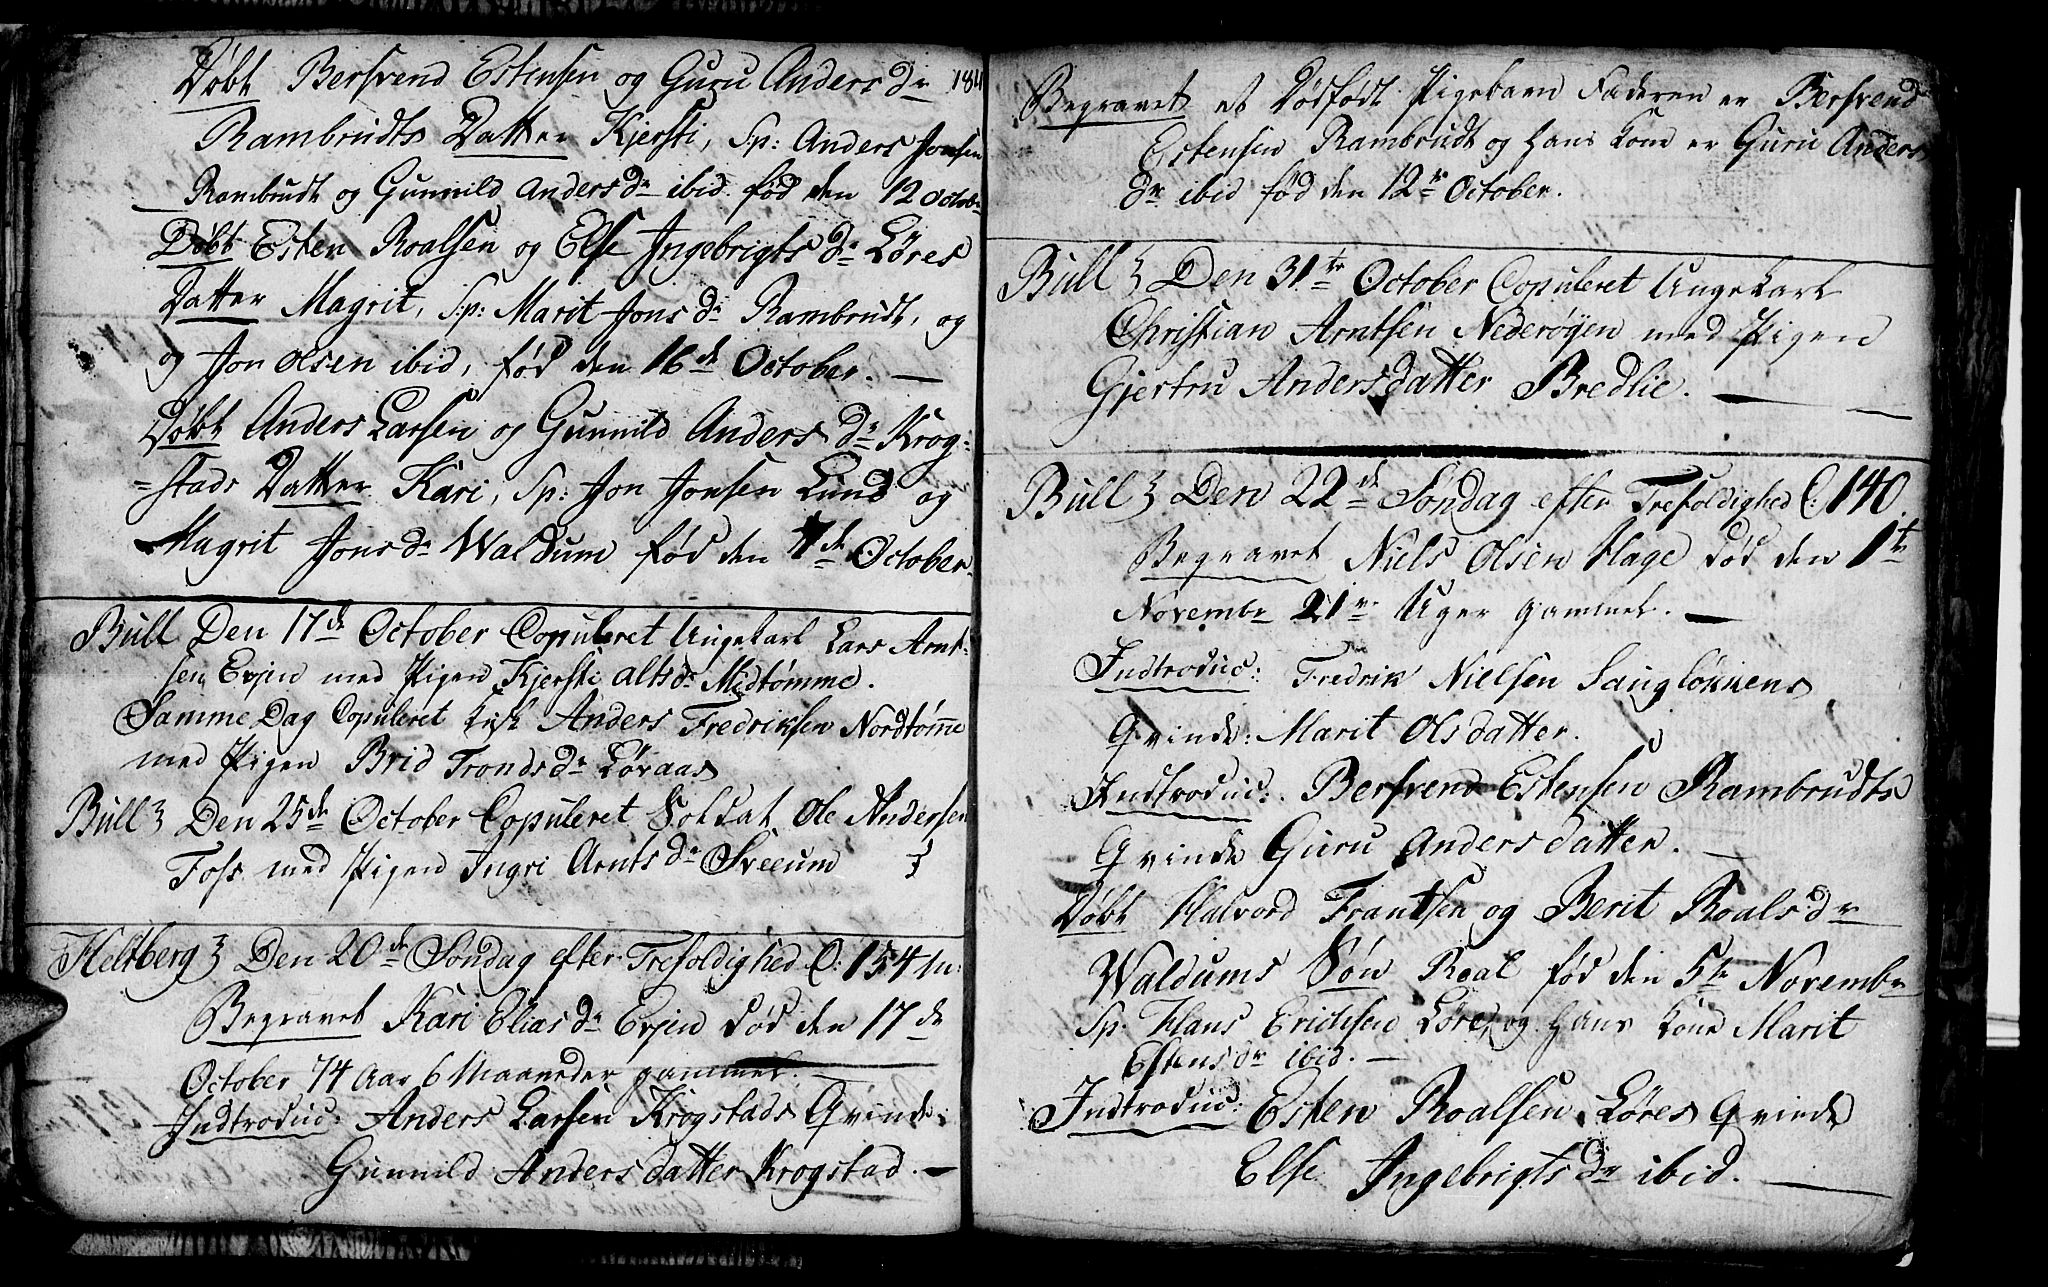 Døbt Bersvend Estensen og Guru Anders dr 184
Rambrudts Datter Kjersti, Sp: Anders Jonsen
Rambrudt og Gunnild Anders dr ibid. fød den 12 Octobr
Døbt Esten Roalsen og Else Ingebrigts dr Løres
Datter Magrit, Sp: Marit Jons dr Rambrudt, og
og Jon Olsen ibid, fød den 16de October. —
Døbt Anders Larsen og Gunnild Anders dr Krog-
=stads Datter Kari, Sp: Jon Jonsen Lund og
Magrit Jons dr Waldum fød den 7de October.
Bull Den 17de October Copuleret Ungekarl Lars Arnt-
sen Evjen med Pigen Kjersti Alts dr Midtømme.
Samme Dag Copuleret Anders Fredriksen Nordtømme
med Pigen Brid Tronds dr Løvaas
Bull } Den 25de October Copuleret Soldat Ole Andersen
Foss med Pigen Ingri Arnts dr Sveeum }
Heltberg } Den 20de Søndag efter Trefoldighed C: 154 m:
Begravet Kari Elias dr Evjen død den 17de
October 74 Aar 6 Maaneder gammel. —
Indtroduc: Anders Larsen Krogstads Qvinde:
Gunnild Andersdatter Krogstad. —
Begravet et Dødfødt Pigebarn Faderen er Bersvend
Estensen Rambrudt og hans Kone er Guru Anders
dr ibid fød den 12te October.
Bull } Den 31te October Copuleret Ungekarl
Christian Arntsen Nederøyen med Pigen
Gjertru Andersdatter Bredlie. —
Bull } Den 22de Søndag efter Trefoldighed C: 140.
Begravet Niels Olsen Hage død den 1te
Novembr 21 Uger gammel. —
Indtroduc: Fredrik Nielsen Saugløkkens
Qvinde: Marit Olsdatter.
Indtroduc: Bersvend Estensen Rambrudts
Qvinde Guru Andersdatter. —
Døbt Halvord Frantsen og Berit Roals dr
Waldums Søn Roal fød den 5te Novembr
Sp. Hans Erichsen Løre, og hans Kone Marit
Estens dr ibid. —
Indtroduc: Esten Roalsen Løres Qvinde
Else Ingebrigts dr ibid. —